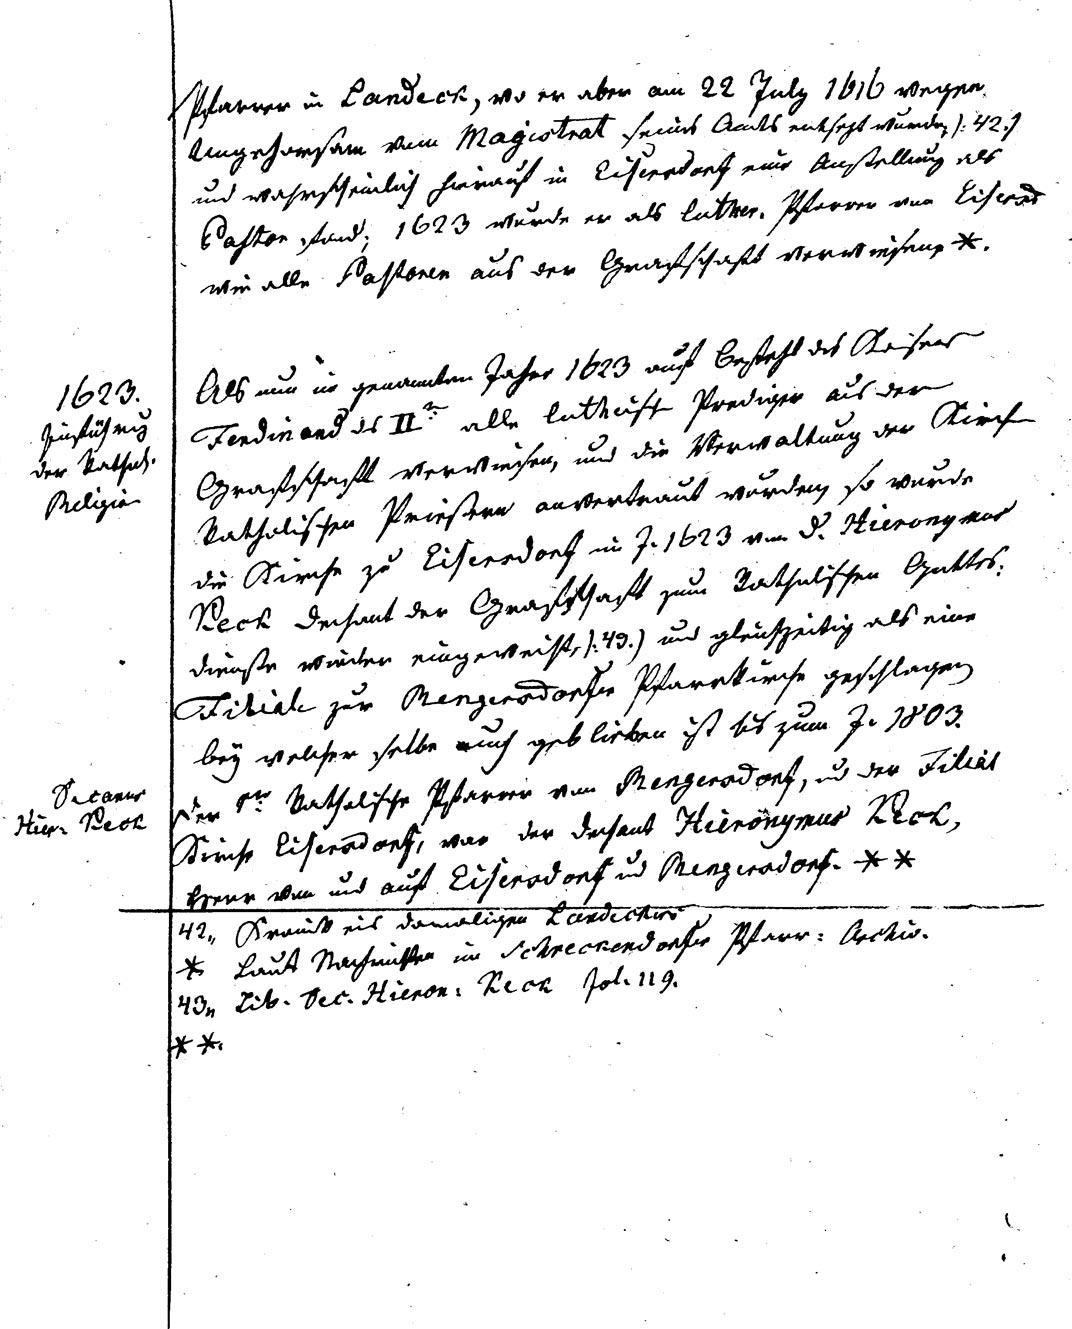 Pfarrer in Landeck, wo er aber am 22 July 1616 wegen
Ungehorsam vom Magistrat seines Amts entsetzt wurde, /: 42. /
und wahrscheinlich hierauf in Eisersdorf eine Anstellung als
Pastor fand; 1623 wurde er als luther. Pfarrer von Eisersd
wie alle Pastoren aus der Grafschaft verwiesen *.
1623.
Einführung
der Kathol.
Religion
Als nun im genannten Jahre 1623 auf Befehl des Kaisers
Ferdinand des II. alle luther. Prediger aus der
Grafschaft verwiesen, und die Verwaltung der Kirche
Katholischen Priestern anvertraut wurden, so wurde
die Kirche zu Eisersdorf im J. 1623 von D. Hieronymus
Keck Dechant der Grafschaft zum Katholischen Gottes-
dienste wieder eingeweiht, /: 43. / und gleichzeitig als eine
Filiale zur Rengersdorfer Pfarrkirche geschlagen
bey welcher selbe auch geblieben ist bis zum J. 1803.
Decanus
Hier: Keck
Der 1te Katholische Pfarrer von Rengersdorf, und der Filial
Kirche Eisersdorf, war der Dechant Hieronymus Keck,
Herr von und auf Eisersdorf und Rengersdorf. * *
42,, Kronik des damaligen Landecker
* Laut Nachrichten im Schreckendorfer Pfarr: Archiv.
43,, Lib. Dec. Hieron: Keck fol. 119.
* *.